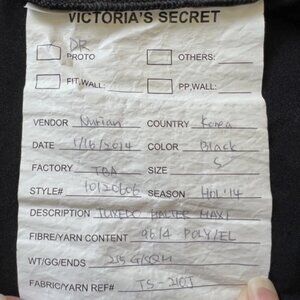 VICTORIA'S SECRET
DR
PROTO OTHERS:
FIT,WALL: PP,WALL:
VENDOR Nurian COUNTRY Korea
DATE 1/16/2014 COLOR Black
FACTORY TBA SIZE S
STYLE# 10120606 SEASON HOL '14
DESCRIPTION TUXEDO HALTER MAXI
FIBRE/YARN CONTENT 96/4 POLY/EL
WT/GG/ENDS 215 G/SQM
FABRIC/YARN REF# TS-210J